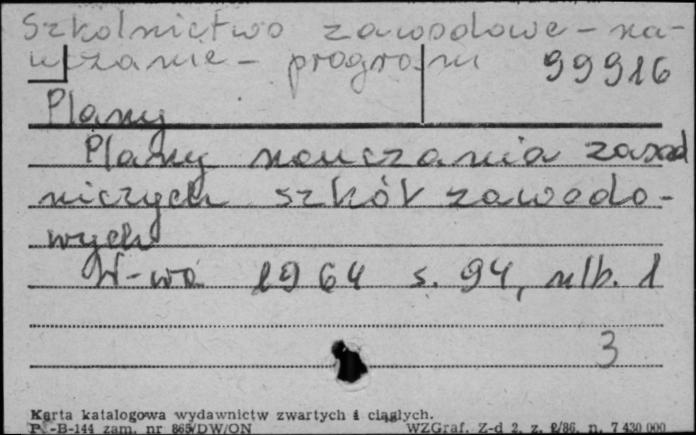 Szkolnictwo zawodowe - na-
uczanie - program 99916
Plany
Plany nauczania zasad
niczych szkół zawodo-
wych
W-wa 1964 s. 94, nlb. 1
3
Karta katalogowa wydawnictw zwartych i ciągłych.
-B-144 zam. nr 865/DW/ON WZGraf. Z-d 2, z. 2/86, n. 7 430 000